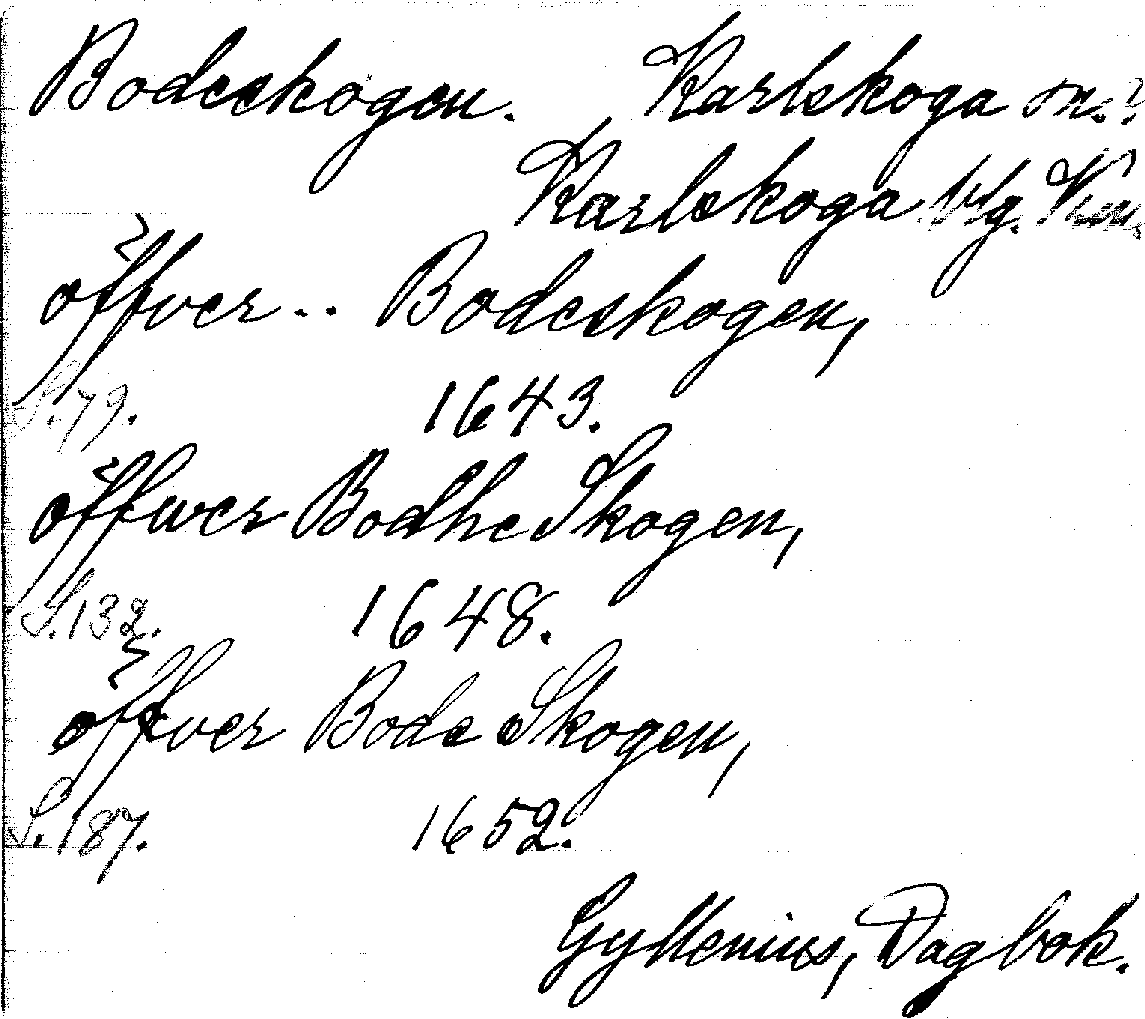 Bodeskogen. Karlskoga sn.?
Karlskoga blg. Vrm.
öffver .. Bodeskogen,
S. 79. 1643.
öffwer Bodhe Skogen,
S. 132. 1648.
öffver Bode Skogen,
S. 187. 1652.
Gyllenius, Dagbok.